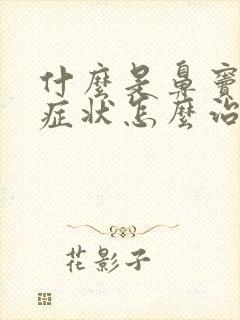 什麼是鼻竇
症狀怎麼治
花影子